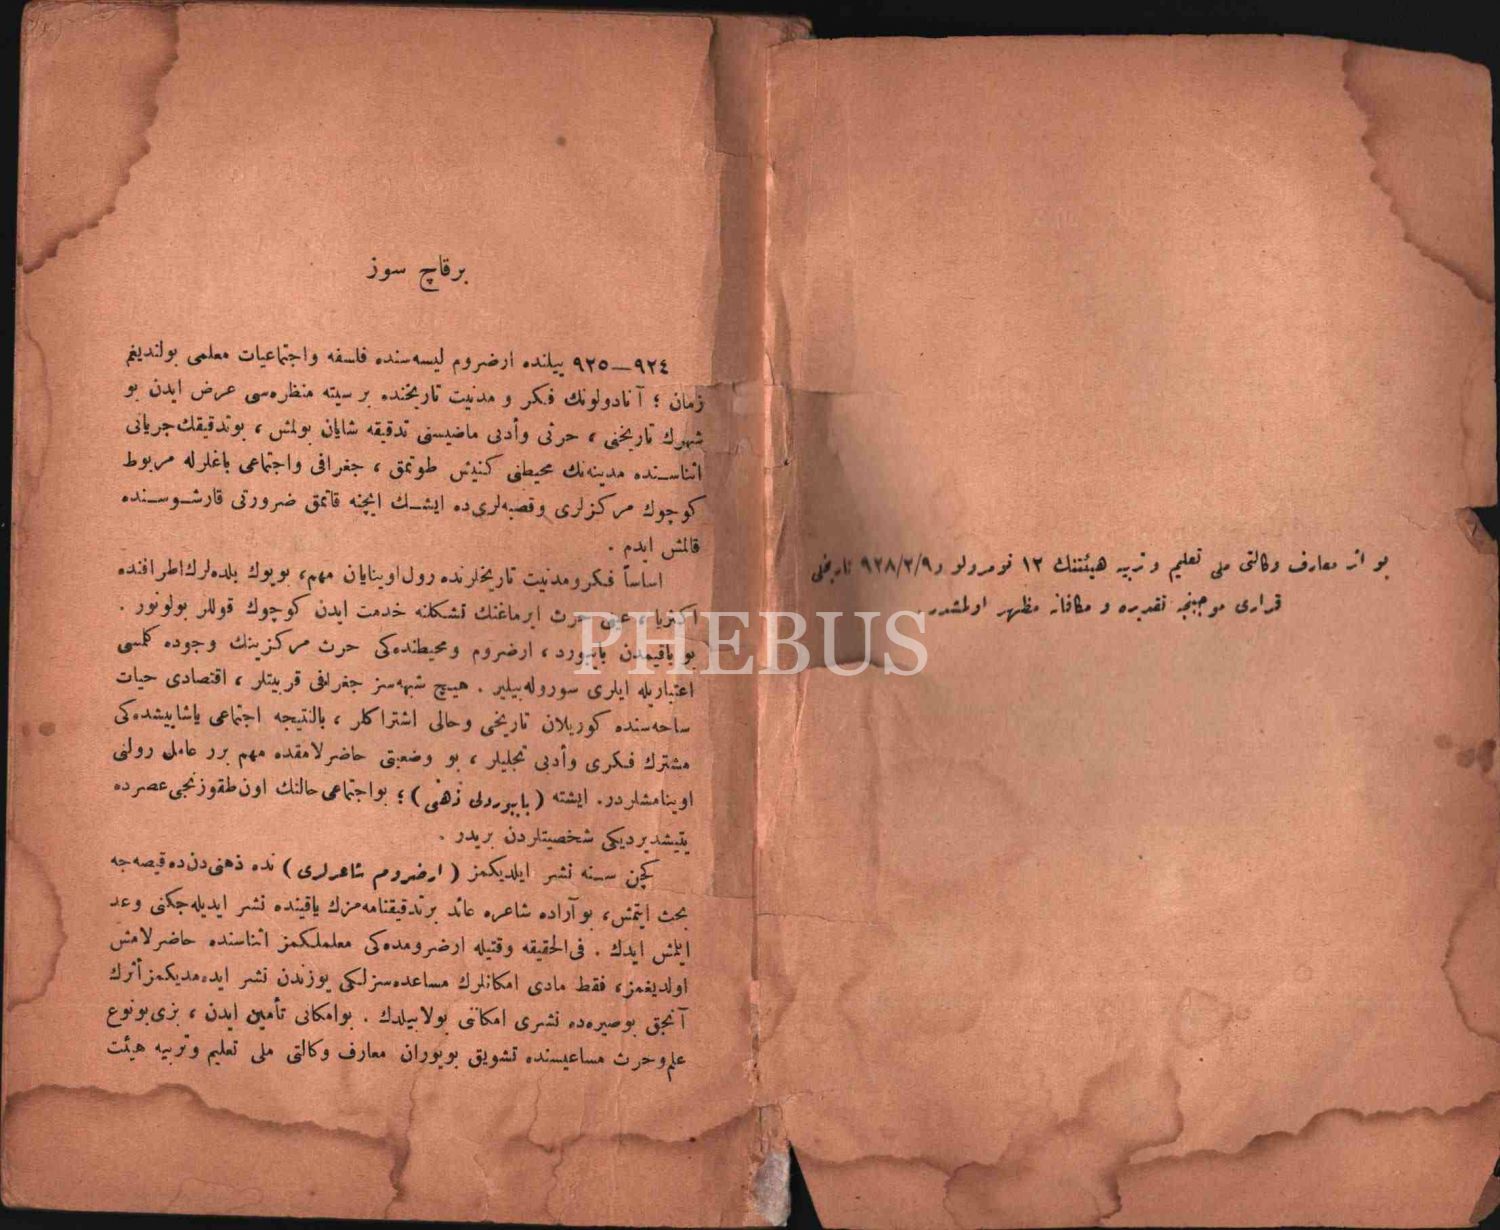 بو اثر معارف وكالتی ملی تعلیم و تربیه هیئتنك ١٢ نومرولو و ٩٢٨/٢/٩ تاریخلی
قراری موجبنجه تقدیره و مكافاته مظهر اولمشدر .
برقاچ سوز
٩٢٤—٩٢٥ ییلنده ارضروم لیسه‌سنده فلسفه واجتماعیات معلمی بولندیغم
زمان ؛ آنادولونك فكر و مدنیت تاریخنده بر سیته منظره‌سی عرض ایدن بو
شهرك تاریخنی ، حرثی وأدبی ماضیسنی تدقیقه شایان بولمش ، بوتدقیقك‌جریانی
اثناسـنده مدینه‌نك محیطنی كنیش طوتمق ، جغرافی واجتماعی باغلرله مربوط
كوچوك مركزلری وقصبه‌لری‌ده ایشـك ایچنه قاتمق ضرورتی قارشـوسـنده
قالمش ایدم .
اساساً فكرومدنیت تاریخلرنده رول‌اوینایان مهم، بویوك بلده‌لرك‌اطرافنده
اكثریا ، عینی حرث ایرماغنك تشكلنه خدمت ایدن كوچوك قوللر بولونور .
بو باقیمدن بایبورد ، ارضروم ومحیطنده‌كی حرث مركزینك وجوده كلمسی
اعتباریله ایلری سوروله‌بیلیر . هیچ شبهه‌سز جغرافی قربیتلر ، اقتصادی حیات
ساحه‌سنده كوریلان تاریخی وحالی اشتراكلر ، بالنتیجه اجتماعی یاشاییشده‌كی
مشترك فكری وأدبی تجلیلر ، بو وضعیتی حاضرلامقده مهم برر عامل رولنی
اوینامشلردر. ایشته (بایبوردلی ذهنی) ؛ بواجتماعی‌حالنك اون‌طقوزنجی‌عصرده
یتیشدیردیكی شخصیتلردن بریدر .
كچن سـنه نشر ایلدیكمز (ارضروم شاعرلری) نده ذهنی‌دن‌ده قیصه‌جه
بحث ایتمش، بوآراده شاعره عائد برتدقیقنامه‌مزك یاقینده نشر ایدیله‌جكنی وعد
ایلمش ایدك . فی‌الحقیقه وقتیله ارضرومده‌كی معلملكمز اثناسنده حاضرلامش
اولدیغمز، فقط مادی امكانلرك مساعده‌سزلكی یوزندن نشر ایده‌مدیكمزأثرك
آنجق بوصیره‌ده نشری امكانی بولابیلدك . بوامكانی تأمین ایدن ، بزی‌بونوع
علم‌وحرث مساعیسنده تشویق بویوران معارف وكالتی ملی تعلیم وتربیه هیئت
PHEBUS